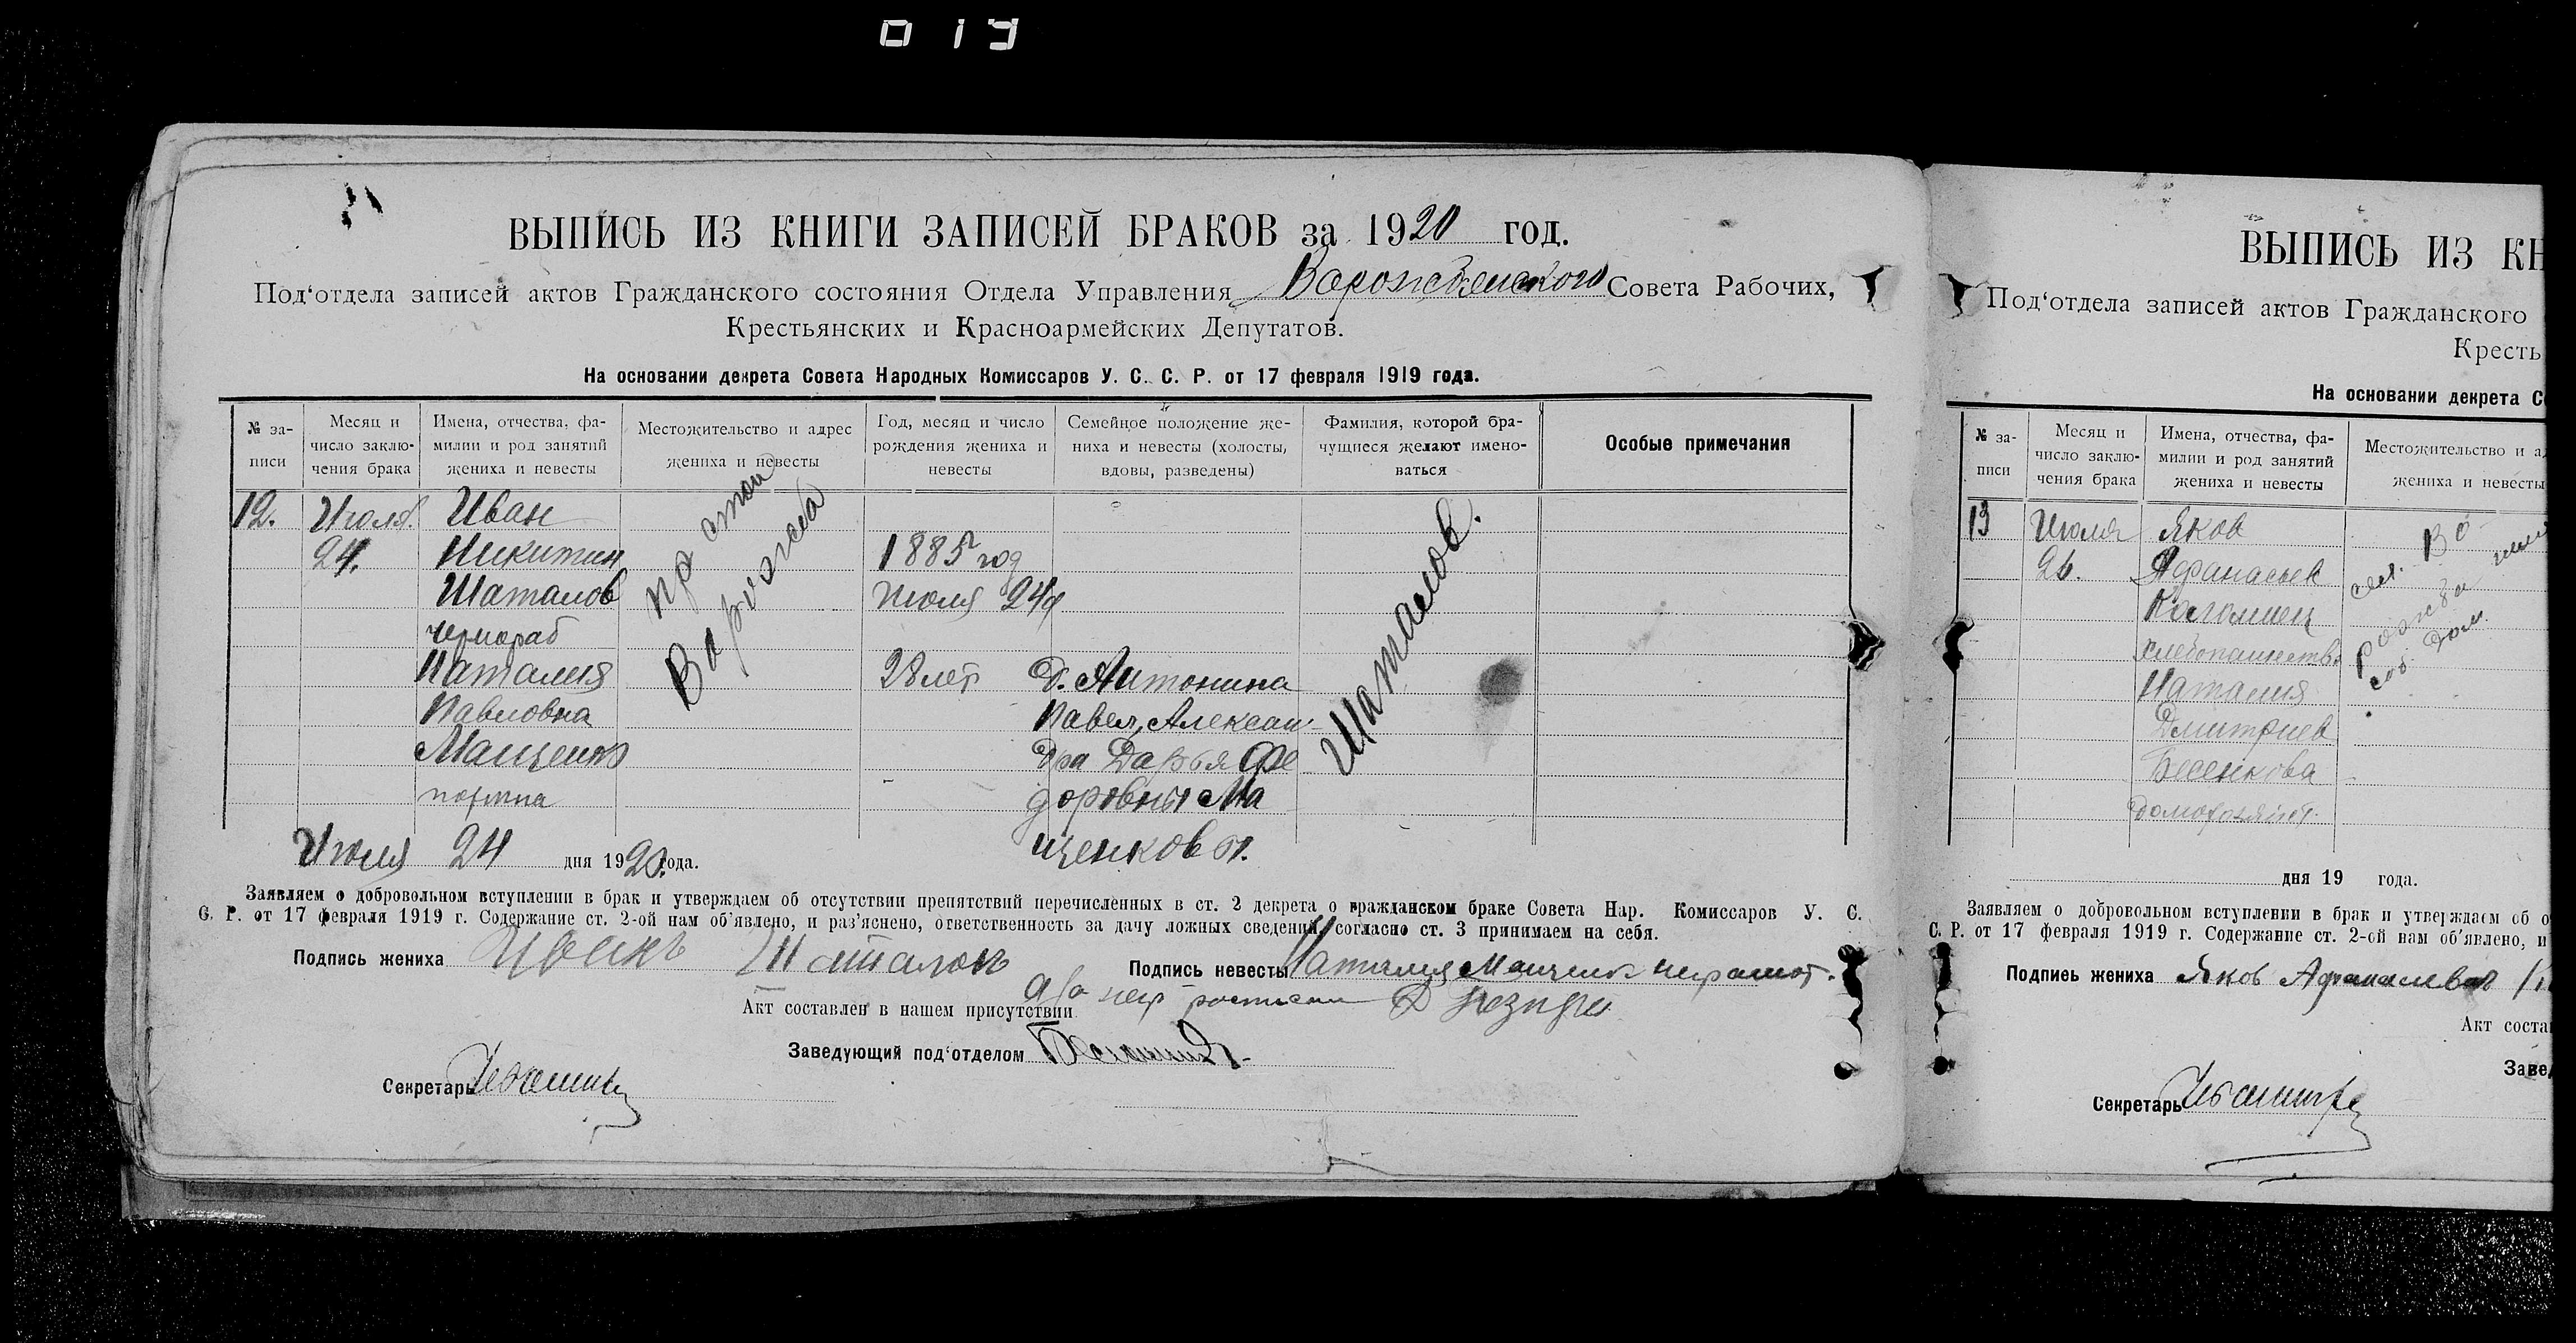 019
ВЫПИСЬ ИЗ КНИГИ ЗАПИСЕЙ БРАКОВ за 1920 год.
Под‘отдела записей актов Гражданского состояния Отдела Управления Ворожбянского Совета Рабочих,
Крестьянских и Красноармейских Депутатов.
На основании декрета Совета Народных Комиссаров У. С. С. Р. от 17 февраля 1919 года.
№ за-
писи
Месяц и
число заклю-
чения брака
Имена, отчества, фа-
милии и род занятий
жениха и невесты
Местожительство и адрес
жениха и невесты
Год, месяц и число
рождения жениха и
невесты
Семейное положение же-
ниха и невесты (холосты,
вдовы, разведены)
Фамилия, которой бра-
чущиеся желают имено-
ваться
Особые примечания
12.
Июля
24.
Иван
Никитин
Шаталов
Наталия
Павловна
Мащенко
пр стан
Ворожба
1885 год
Июля 24д
28 лет
д. Антонина
Павел, Алексан-
дра Дарья Фе
доровны Ма
щенков
Шаталов.
Июля 24 дня 1920 года.
Заявляем о добровольном вступлении в брак и утверждаем об отсутствии препятствий перечисленных в ст. 2 декрета о гражданском браке Совета Нар. Комиссаров У. С.
С. Р. от 17 февраля 1919 г. Содержание ст. 2-ой нам об’явлено, и раз’яснено, ответственность за дачу ложных сведений, согласно ст. 3 принимаем на себя.
Подпись жениха Иванъ Шаталовъ
Подпись невесты Наталия Мащенко неграмот.
Акт составлен в нашем присутствии
Заведующий под‘отделом
Секретарь
ВЫПИСЬ ИЗ КН
Под‘отдела записей актов Гражданского
Кресть
На основании декрета С
№ за-
писи
Месяц и
число заклю-
чения брака
Имена, отчества, фа-
милии и род занятий
жениха и невесты
Местожительство и а
жениха и невесты
13
Июля
26.
Яков
Афанасьев
Коломиец
хлебопашество
Наталия
Дмитриев
Бесенкова
соб. дом.
дня 19 года.
Заявляем о добровольном вступлении в брак и утверждаем об о
С. Р. от 17 февраля 1919 г. Содержание ст. 2-ой нам об’явлено, и
Подпись жениха Яков Афанасьев
Акт соста
Заве
Секретарь